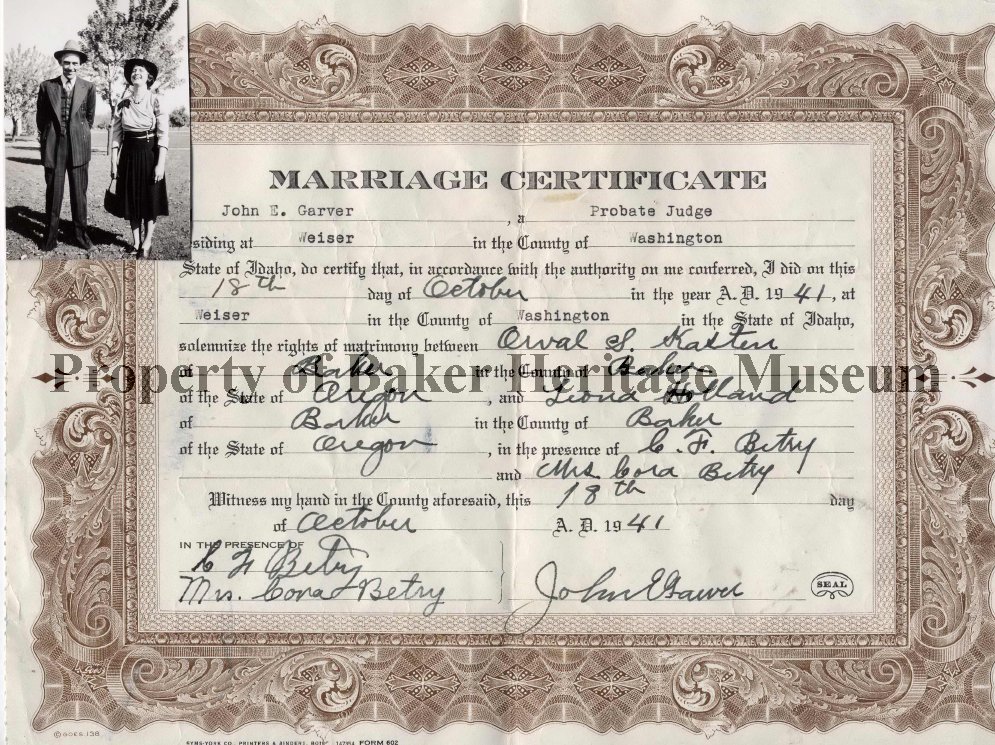 MARRIAGE CERTIFICATE
John E. Garver , a Probate Judge
siding at Weiser in the County of Washington
State of Idaho, do certify that, in accordance with the authority on me conferred, I did on this
18th day of October in the year A. D. 1941, at
Weiser in the County of Washington in the State of Idaho,
solemnize the rights of matrimony between Orval S. Kasten
Property of Baker Heritage Museum
of Baker in the County of Baker
of the State of Oregon , and Leona Holland
of Baker in the County of Baker
of the State of Oregon , in the presence of C. F. Betry
and Mrs. Cora Betry
Witness my hand in the County aforesaid, this 18th day
of October A. D. 1941
IN THE PRESENCE OF
C F Betry
Mrs. Cora Betry
John E Garver
SEAL
©GOES 138
SYMS-YORK CO., PRINTERS & BINDERS, BOISE FORM 602